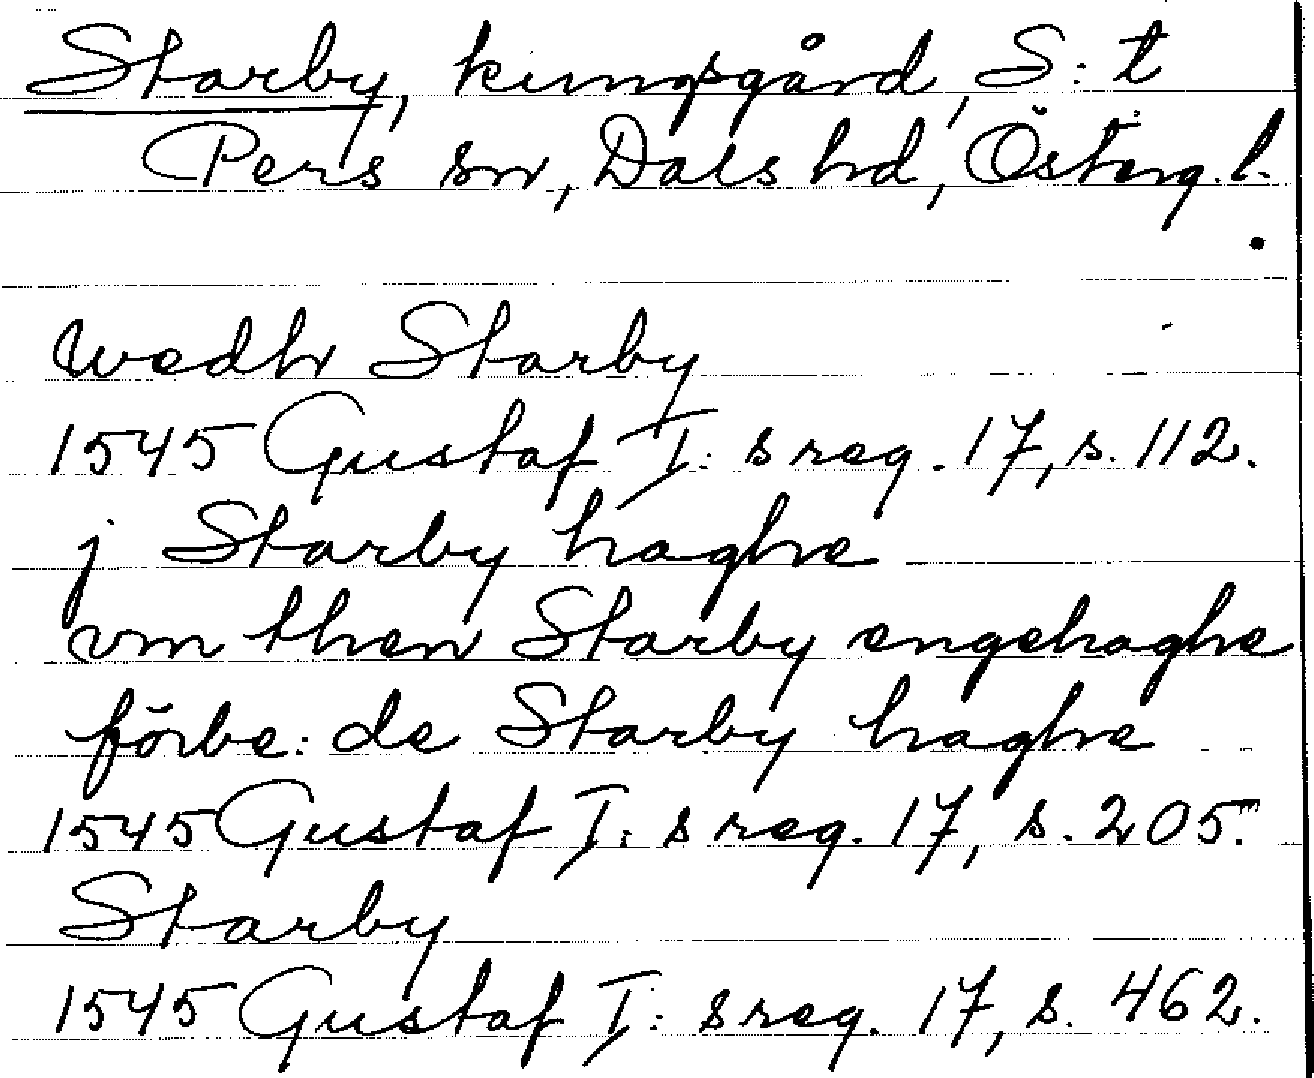 Starby, kungsgård, S:t
Pers sn, Dals hd, Österg.l.
wedh Starby
1545 Gustaf I:s reg. 17, s. 112.
j Starby haghe
vm then Starby engehaghe
förbe:de Starby haghe
1545 Gustaf I:s reg. 17, s. 205.
Starby
1545 Gustaf I:s reg. 17, s. 462.